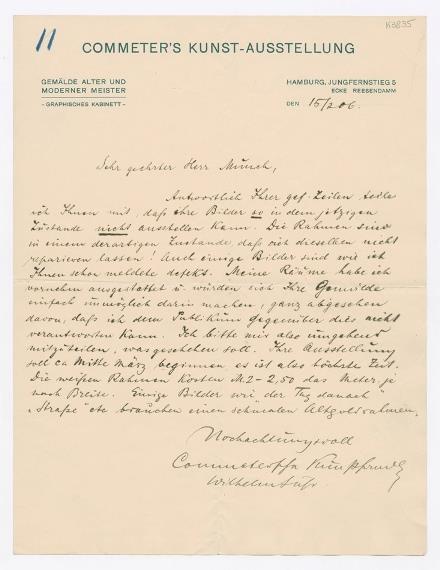 11
K3835
COMMETER'S KUNST-AUSSTELLUNG
GEMÄLDE ALTER UND
MODERNER MEISTER
- GRAPHISCHES KABINETT -
HAMBURG, JUNGFERNSTIEG 5
ECKE REESENDAMM
DEN 15/2 06.
Sehr geehrter Herr Munch,
Antwortlich Ihrer gef. Zeilen, teile
ich Ihnen mit, daß ihre Bilder so in dem jetzigen
Zustande nicht ausstellen kann. Die Rahmen sind
in einem derartigen Zustande, daß sich dieselben nicht
reparieren lassen! Auch einige Bilder sind wie ich
Ihnen schon meldete defekt. Meine Räume habe ich
vornehm ausgestattet u. würden sich Ihre Gemälde
einfach unmöglich darin machen, ganz abgesehen
davon, daß ich dem Publikum gegenüber dies nicht
verantworten kann. Ich bitte mir also umgehend
mitzuteilen, was geschehen soll. Ihre Ausstellung
soll ca Mitte März beginnen, es ist also höchste Zeit.
Die weißen Rahmen kosten M 2-2,50 das Meter, je
nach Breite. Einige Bilder wie "der Tag danach"
"Straße" etc brauchen einen schmalen Altgoldrahmen.
Hochachtungsvoll
Commeter
Wilhelm Suhr